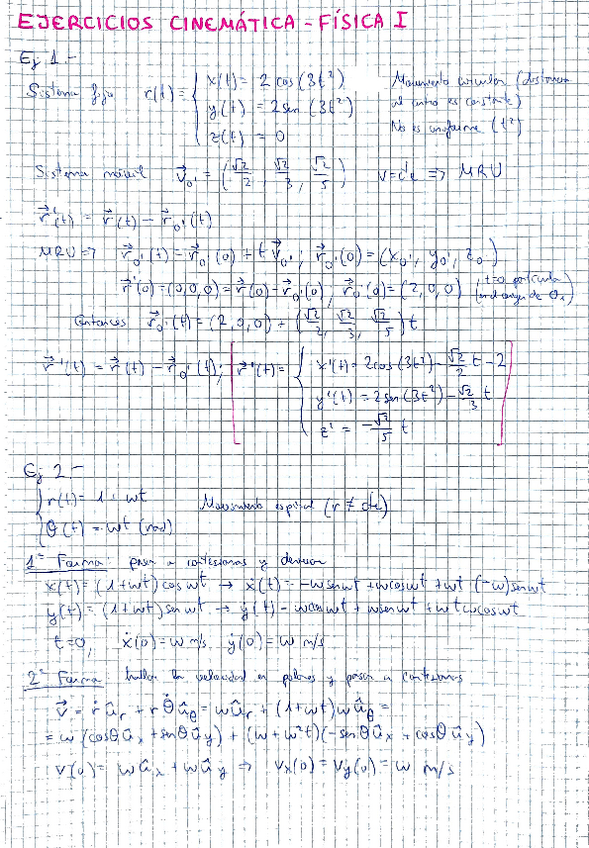 EJERCICIOS CINEMÁTICA - FÍSICA I
Ej 1.-
Sistema fijo r(t) = { x(t) = 2 cos (3t²) Movimiento circular (distancia
y(t) = 2 sen (3t²) al centro es constante)
z(t) = 0 No es uniforme (t²)
Sistema móvil v⃗₀' = (√2/2, √2/3, √2/5) v = cte ⇒ MRU
r⃗'(t) = r⃗(t) - r⃗₀'(t)
MRU ⇒ r⃗₀'(t) = r⃗₀'(0) + t v⃗₀' ; r⃗₀'(0) = (x₀', y₀', z₀')
r⃗'(0) = (0,0,0) = r⃗(0) - r⃗₀'(0), r⃗₀'(0) = (2,0,0) (t=0 partícula
Entonces r⃗₀'(t) = (2,0,0) + (√2/2, √2/3, √2/5) t
r⃗'(t) = r⃗(t) - r⃗₀'(t); r⃗'(t) = { x'(t) = 2cos (3t²) - √2/2 t - 2
y'(t) = 2 sen (3t²) - √2/3 t
z' = -√2/5 t
Ej 2.-
{ r(t) = 1 + wt Movimiento espiral (r ≠ cte)
θ(t) = wt (rad)
1ª Forma pasar a cartesianas y derivar
x(t) = (1+wt) cos wt → ẋ(t) = -w sen wt + w cos wt + wt (-w) sen wt
y(t) = (1+wt) sen wt → ẏ(t) = w cos wt + w sen wt + wt w cos wt
t=0, ẋ(0) = w m/s, ẏ(0) = w m/s
2ª Forma hallar la velocidad en polares y pasar a cartesianas
v⃗ = ṙ û_r + r θ̇ û_θ = w û_r + (1+wt) w û_θ =
= w (cosθ û_x + senθ û_y) + (w + w²t)(-senθ û_x + cosθ û_y)
v(0) = w û_x + w û_y ⇒ v_x(0) = v_y(0) = w m/s